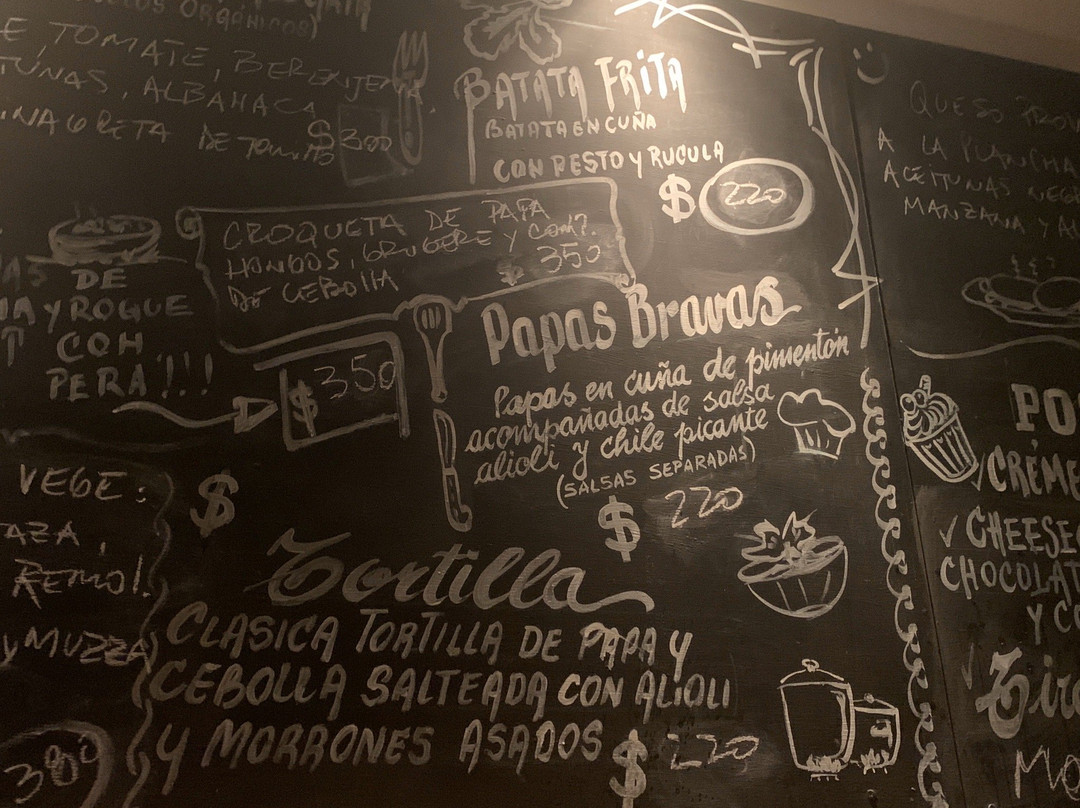 ORGÁNICOS)
E, TOMATE, BERENJENA
TUNAS, ALBAHACA
$300
BATATA FRITA
BATATA EN CUÑA
CON PESTO Y RUCULA
$ 220
CROQUETA DE PAPA
HONGOS, GRUYERE Y COMP.
DE CEBOLLA $ 350
DE
Y ROQUE
CON
PERA!!!
$ 350
Papas Bravas
Papas en cuña de pimentón
acompañadas de salsa
alioli y chile picante
(SALSAS SEPARADAS)
$ 220
VEGE:
AZA,
REMO!
Y MUZZA
380
$
Tortilla
CLASICA TORTILLA DE PAPA Y
CEBOLLA SALTEADA CON ALIOLI
Y MORRONES ASADOS $ 220
QUESO PROV
A LA PLANCHA
ACEITUNAS NEG
MANZANA Y
PO
✓CRÉME
✓CHEESEC
CHOCOLAT
Y CO
✓Tir
MO